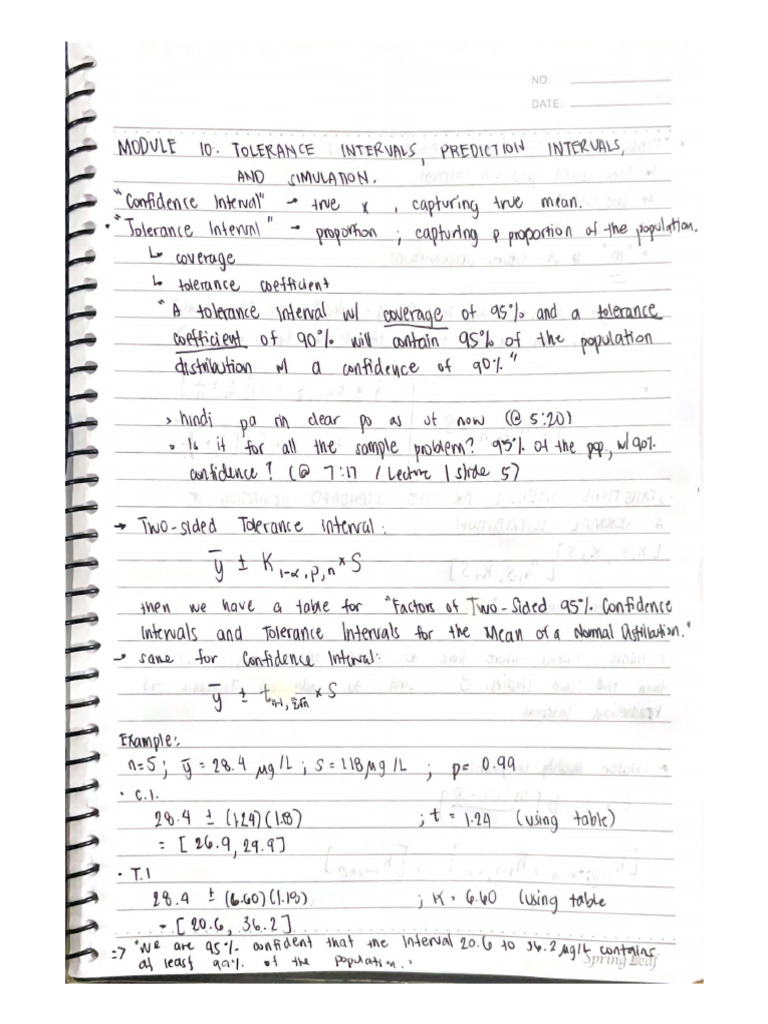 NO:
DATE:
MODULE 10: TOLERANCE INTERVALS, PREDICTION INTERVALS,
AND SIMULATION.
"Confidence Interval" → true x , capturing true mean.
• "Tolerance Interval" → proportion ; capturing p proportion of the population.
↳ coverage
↳ tolerance coefficient
"A tolerance interval w/ coverage of 95% and a tolerance
coefficient of 90% will contain 95% of the population
distribution w/ a confidence of 90%"
> hindi pa rin clear po as of now (@ 5:20)
• Is it for all the sample problem? 95% of the pop., w/ 90%
confidence? (@ 7:17 / Lecture 1 slide 5)
→ Two-sided Tolerance Interval:
ȳ ± K 1-α, p, n * S
then we have a table for "Factors of Two-Sided 95% Confidence
Intervals and Tolerance Intervals for the Mean of a Normal Distribution."
→ same for Confidence Interval:
ȳ ± t * S
Example:
n=5; ȳ = 28.4 µg/L ; S = 1.18 µg/L ; p= 0.99
• C.I.
28.4 ± (1.24)(1.18) ; t = 1.24 (using table)
= [26.9, 29.9]
• T.I
28.4 ± (6.60)(1.18) ; K = 6.60 (using table
= [20.6, 36.2]
=> "We are 95% confident that the Interval 20.6 to 36.2 µg/L contains
at least 99% of the population."
Spring Leaf